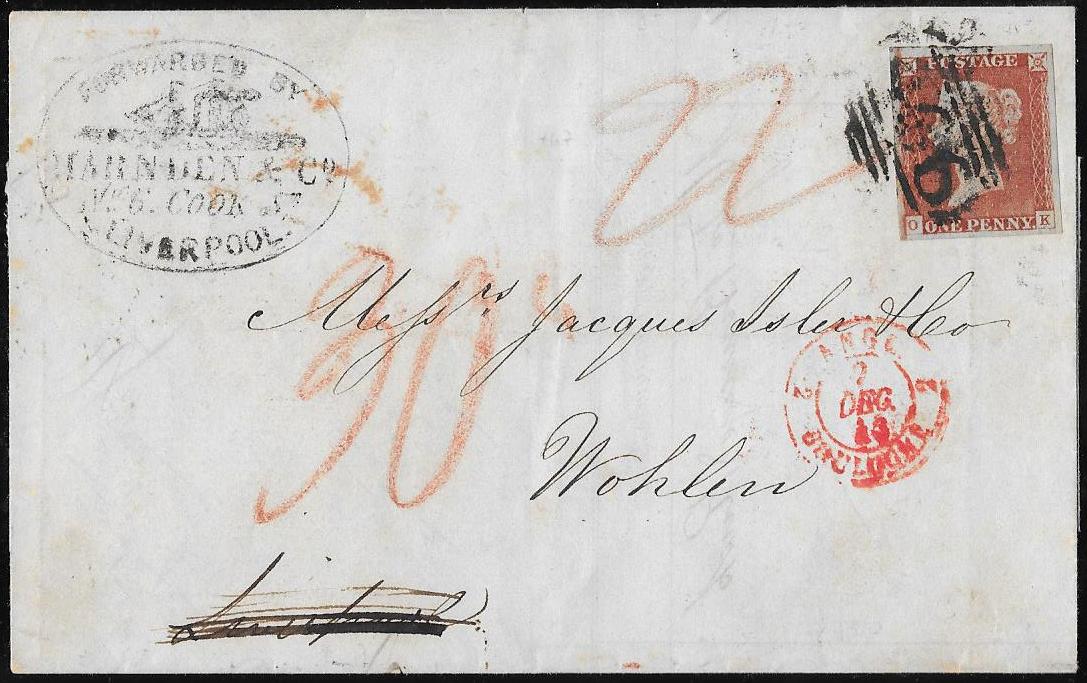 FORWARDED BY
HARNDEN & Co
No 6. COOK ST
LIVERPOOL.
22
POSTAGE
O ONE PENNY K
30
Messrs Jacques Isler & Co
Wohlen
ANGL.
2 2
7
DEC.
BOULOGNE
Liverpool